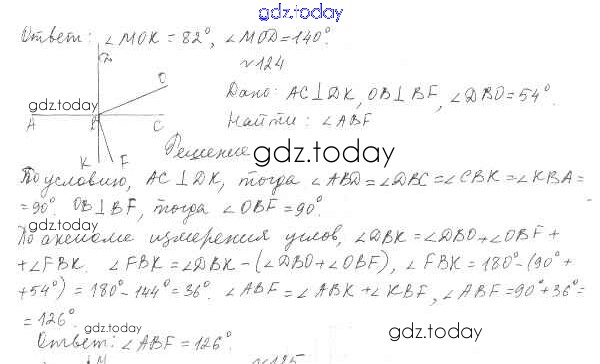 gdz.today
Ответ: ∠MOK = 82°, ∠MOD = 140°.
№124
Дано: AC⊥DK, OB⊥BF, ∠DBO = 54°.
Найти: ∠ABF
O
gdz.today
A B C
K F
Решение
gdz.today
По условию, AC⊥DK, тогда ∠ABD = ∠DBC = ∠CBK = ∠KBA =
= 90°. OB⊥BF, тогда ∠OBF = 90°.
gdz.today
По аксиоме измерения углов, ∠DBK = ∠DBO + ∠OBF +
+ ∠FBK. ∠FBK = ∠DBK - (∠DBO + ∠OBF), ∠FBK = 180° - (90° +
+ 54°) = 180° - 144° = 36°. ∠ABF = ∠ABK + ∠KBF, ∠ABF = 90° + 36° =
= 126°.
gdz.today
gdz.today
Ответ: ∠ABF = 126°.
M
№125